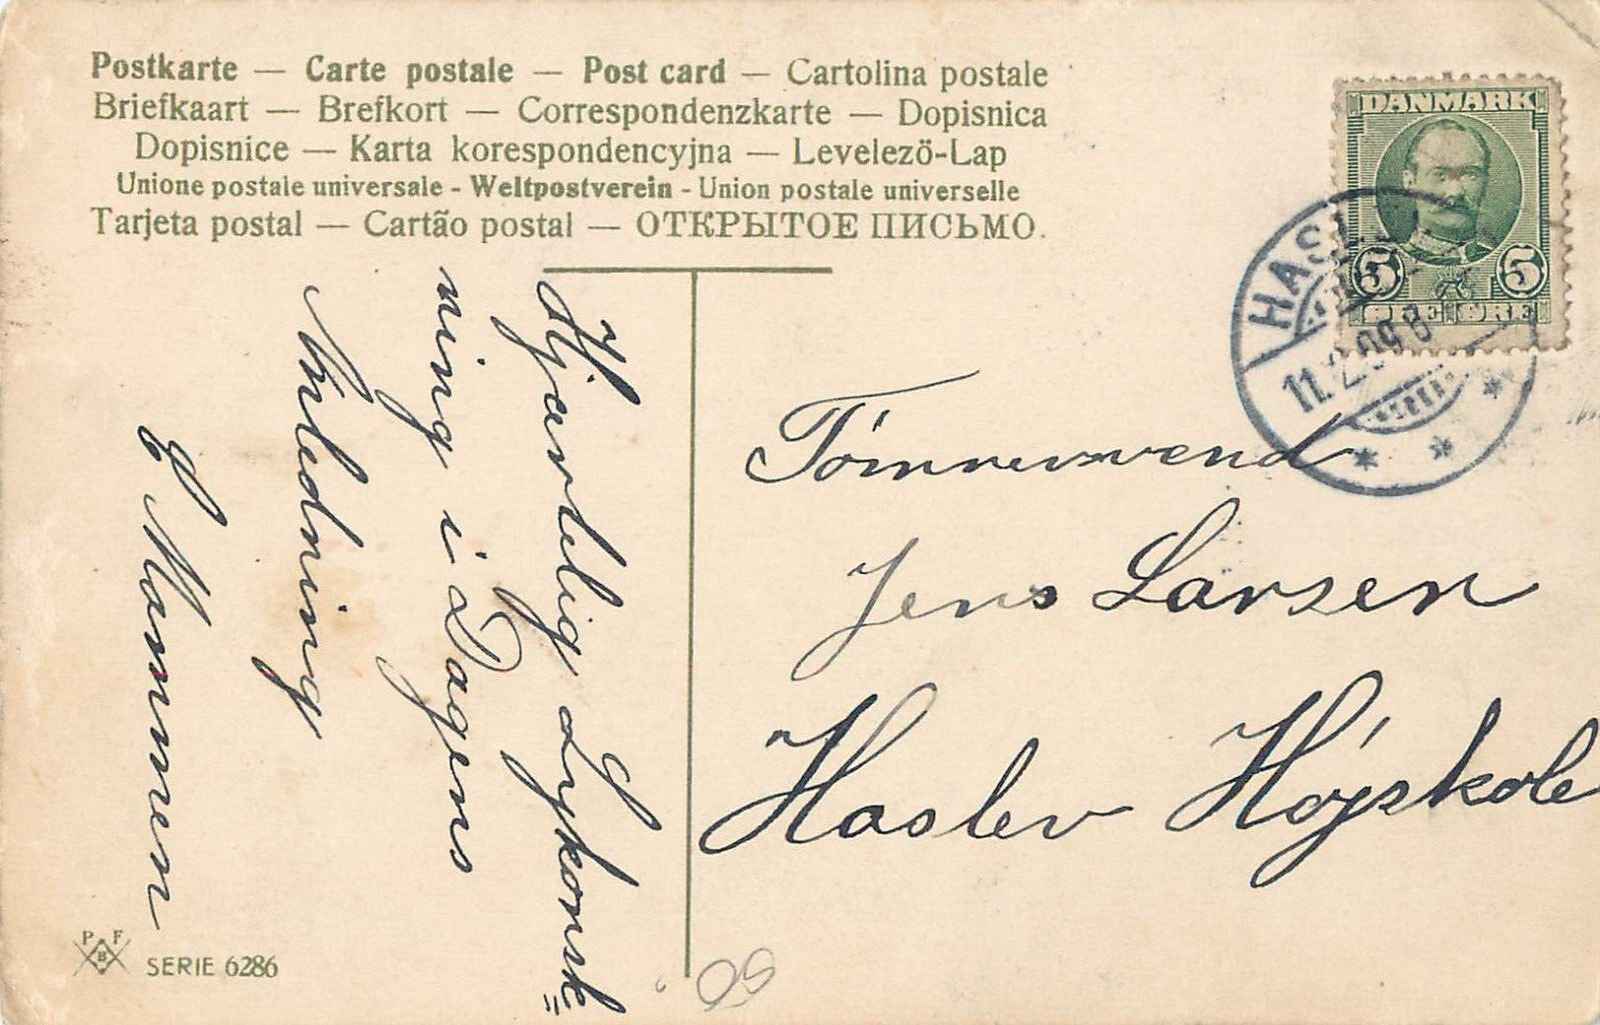 Postkarte — Carte postale — Post card — Cartolina postale
Briefkaart — Brefkort — Correspondenzkarte — Dopisnica
Dopisnice — Karta korespondencyjna — Levelezö-Lap
Unione postale universale - Weltpostverein - Union postale universelle
Tarjeta postal — Cartão postal — ОТКРЫТОЕ ПИСЬМО.
DANMARK
5 5
ØRE ØRE
HASLEV
11.2.09 8
Hjertelig Lykønsk=
ning i Dagens
Anledning
E Mammen
Tömrersvend
Jens Larsen
Haslev Højskole
P F
B
SERIE 6286
50